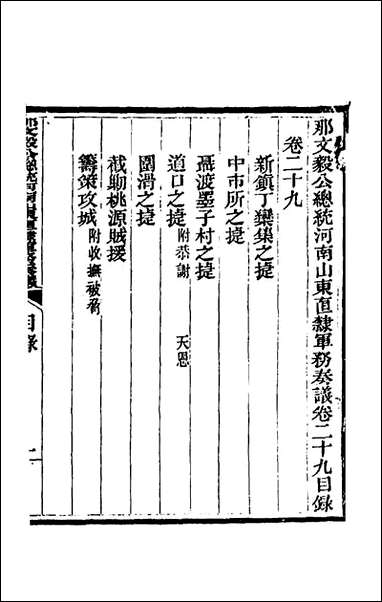 那文毅公總統河南山東直隸軍務奏議卷二十九目錄
卷二十九
新鎮丁欒集之捷
中市所之捷
聶渡墨子村之捷
道口之捷 附恭謝 天恩
圍滑之捷
截勦桃源賊援
籌策攻城 附收撫被脅
那文毅公總統河南山東直隸軍務奏議 目錄